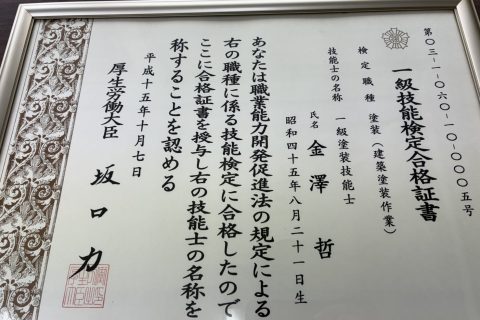 第〇三-一-〇六〇-一-〇〇〇五号
一級技能検定合格証書
検定職種 塗装(建築塗装作業)
技能士の名称 一級塗装技能士
氏名 金澤 哲
昭和四十五年八月二十一日生
あなたは職業能力開発促進法の規定による
右の職種に係る技能検定に合格したので
ここに合格証書を授与し右の技能士の名称を
称することを認める
平成十五年十月七日
厚生労働大臣 坂口 力